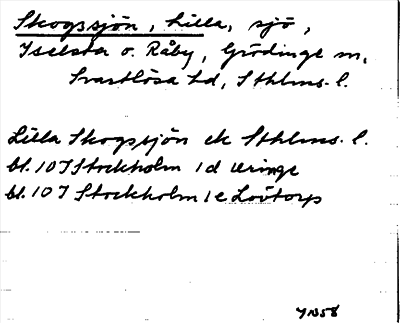 Skogssjön, Lilla, sjö,
Iselsta o. Råby, Grödinge sn,
Svartlösa hd, Sthlms. l.
Lilla Skogssjön ek Sthlms. l.
bl. 10 I Stockholm 1 d Uringe
bl. 10 I Stockholm 1 e Lovtorp